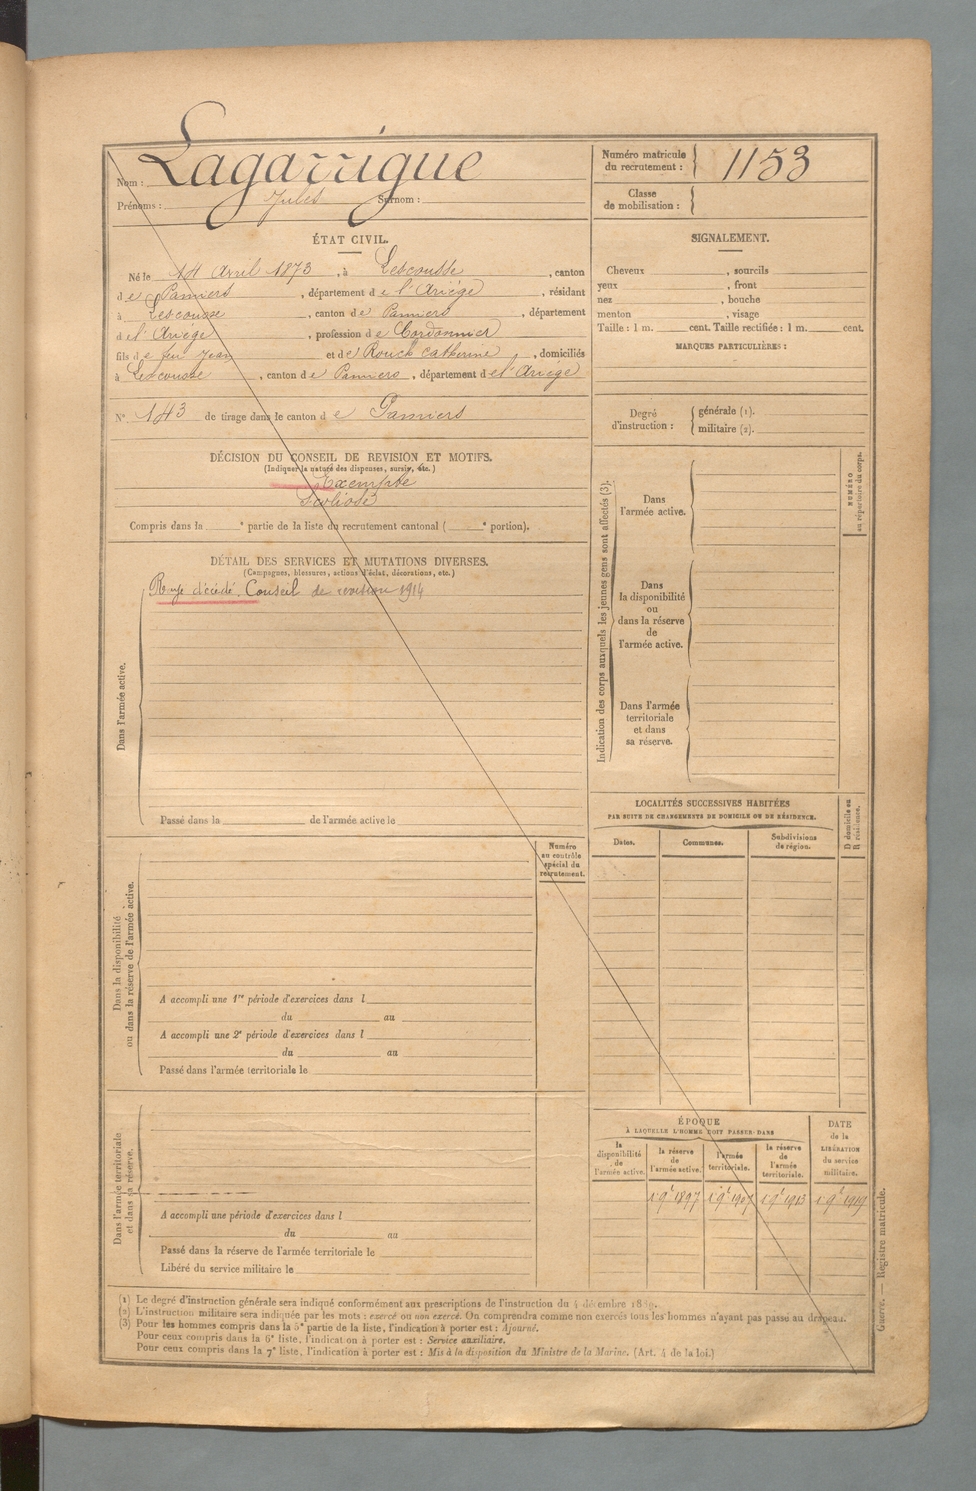 Nom : Lagarrigue
Prénoms : Jules Surnom :
Numéro matricule du recrutement : 1153
Classe de mobilisation :
ÉTAT CIVIL.
Né le 14 Avril 1873, à Lescousse, canton
de Pamiers, département de l'Ariège, résidant
à Lescousse, canton de Pamiers, département
de l'Ariège, profession de Cordonnier
fils de feu Jean et de Rouch Catherine, domiciliés
à Lescousse, canton de Pamiers, département de l'Ariège
N° 143 de tirage dans le canton de Pamiers
DÉCISION DU CONSEIL DE REVISION ET MOTIFS.
(Indiquer la nature des dispenses, sursis, etc.)
Exempté
Scoliose
Compris dans la e partie de la liste du recrutement cantonal ( e portion).
DÉTAIL DES SERVICES ET MUTATIONS DIVERSES.
(Campagnes, blessures, actions d'éclat, décorations, etc.)
décédé. Conseil de revision 1914
Dans l'armée active.
Passé dans la de l'armée active le
Numéro
au contrôle
spécial du
recrutement.
Dans la disponibilité
ou dans la réserve de l'armée active.
A accompli une 1re période d'exercices dans l
du au
A accompli une 2e période d'exercices dans l
du au
Passé dans l'armée territoriale le
Dans l'armée territoriale
et dans sa réserve.
A accompli une période d'exercices dans l
du au
Passé dans la réserve de l'armée territoriale le
Libéré du service militaire le
SIGNALEMENT.
Cheveux , sourcils
yeux , front
nez , bouche
menton , visage
Taille : 1 m. cent. Taille rectifiée : 1 m. cent.
MARQUES PARTICULIÈRES :
Degré d'instruction :
générale (1).
militaire (2).
Indication des corps auxquels les jeunes gens sont affectés (3).
NUMÉRO
au répertoire du corps.
Dans
l'armée active.
Dans
la disponibilité
ou
dans la réserve
de
l'armée active.
Dans l'armée
territoriale
et dans
sa réserve.
LOCALITÉS SUCCESSIVES HABITÉES
PAR SUITE DE CHANGEMENTS DE DOMICILE OU DE RÉSIDENCE.
D domicile ou
R résidence.
Dates. Communes. Subdivisions de région.
ÉPOQUE
À LAQUELLE L'HOMME DOIT PASSER DANS
la disponibilité de l'armée active.
la réserve de l'armée active.
l'armée territoriale.
la réserve de l'armée territoriale.
DATE de la LIBÉRATION du service militaire.
1 9e 1897 1 9e 1907 1 9e 1913 1 9e 1919
(1) Le degré d'instruction générale sera indiqué conformément aux prescriptions de l'instruction du 4 décembre 1889.
(2) L'instruction militaire sera indiquée par les mots : exercé ou non exercé. On comprendra comme non exercés tous les hommes n'ayant pas passé au drapeau.
(3) Pour les hommes compris dans la 5e partie de la liste, l'indication à porter est : Ajourné.
Pour ceux compris dans la 6e liste, l'indication à porter est : Service auxiliaire.
Pour ceux compris dans la 7e liste, l'indication à porter est : Mis à la disposition du Ministre de la Marine. (Art. 4 de la loi.)
Guerre. — Registre matricule.